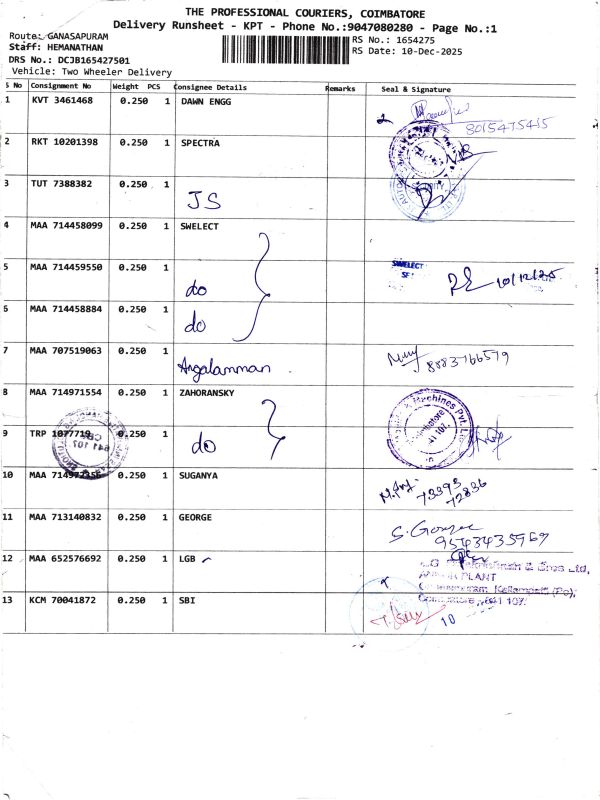 THE PROFESSIONAL COURIERS, COIMBATORE
Delivery Runsheet - KPT - Phone No.:9047080280 - Page No.:1
Route: GANASAPURAM
RS No.: 1654275
Staff: HEMANATHAN
RS Date: 10-Dec-2025
DRS No.: DCJB165427501
Vehicle: Two Wheeler Delivery
S No Consignment No Weight PCS Consignee Details Remarks Seal & Signature
1 KVT 3461468 0.250 1 DAWN ENGG
8015475415
2 RKT 10201398 0.250 1 SPECTRA
3 TUT 7388382 0.250 1 JS
4 MAA 714458099 0.250 1 SWELECT
5 MAA 714459550 0.250 1 do SWELECT 10/12/25
6 MAA 714458884 0.250 1 do
7 MAA 707519063 0.250 1 Angalamman
8883766579
8 MAA 714971554 0.250 1 ZAHORANSKY
9 TRP 1077719 0.250 1 do
641 107
10 MAA 0.250 1 SUGANYA
73393
72836
11 MAA 713140832 0.250 1 GEORGE
S. George
9543435969
12 MAA 652576692 0.250 1 LGB
& Bros Ltd,
PLANT
(Po),
641 107.
13 KCM 70041872 0.250 1 SBI
10